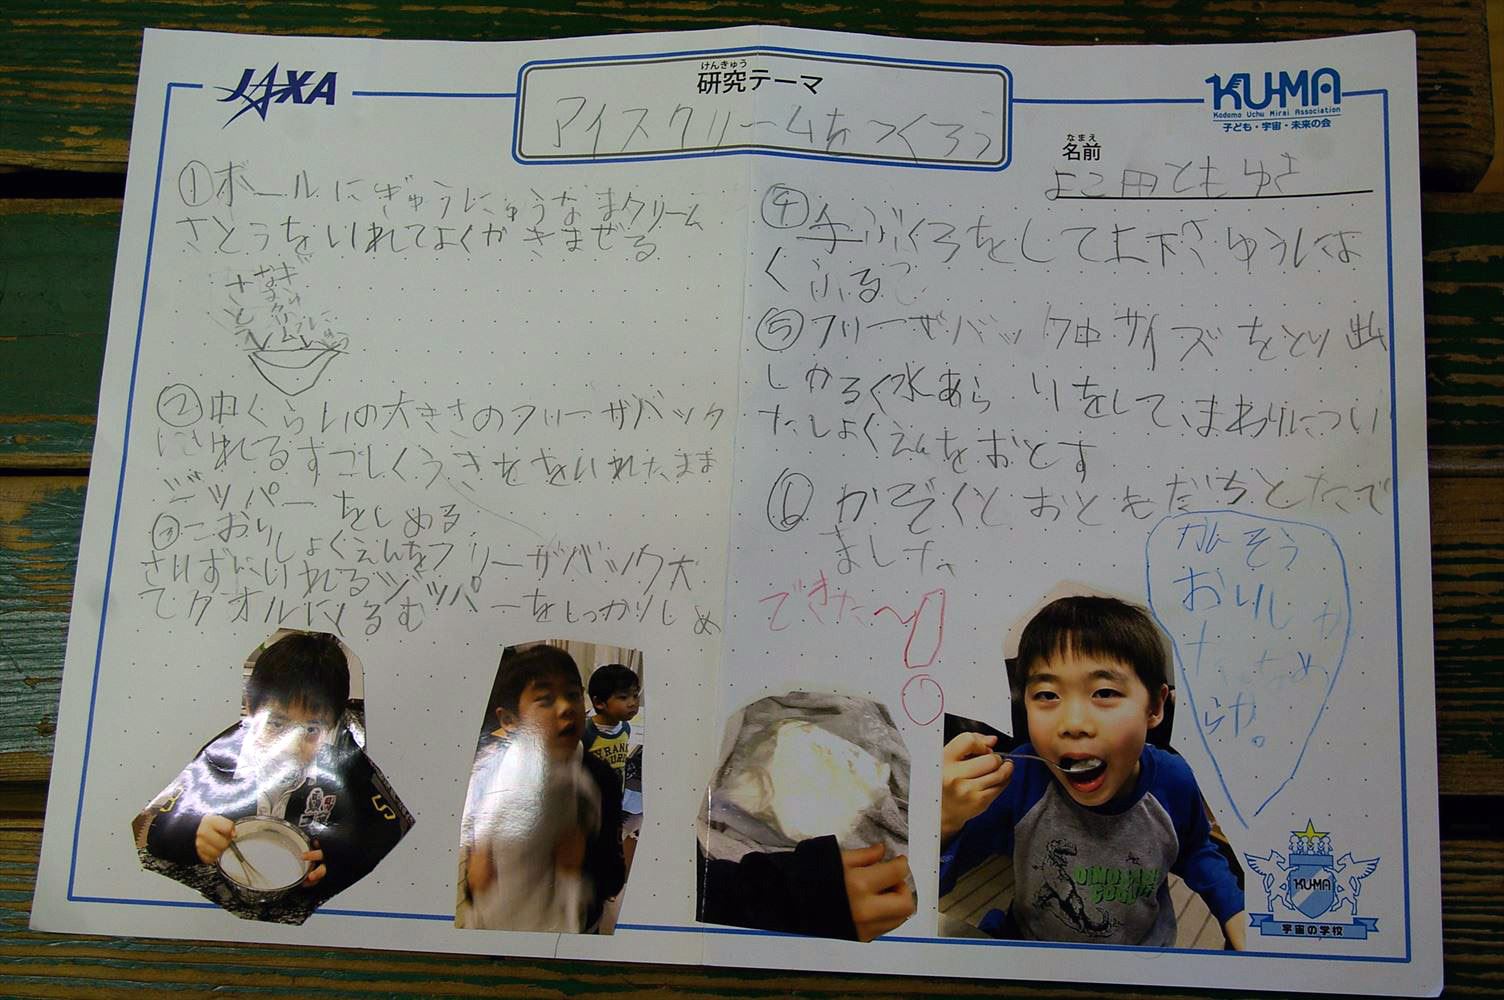 JAXA
けんきゅう
研究テーマ
アイスクリームをつくろう
KU-MA
Kodomo Uchu Mirai Association
子ども・宇宙・未来の会
なまえ
名前
よこ田ともゆき
①ボールにぎゅうにゅうなまクリーム
さとうをいれてよくかきまぜる
②中ぐらいの大きさのフリーザバック
にいれるすこしくうきををいれたまま
ジッパーをしめる
③こおりしょくえんをフリーザバック大
さいずにいれるジッパーをしっかりしめ
てタオルにくるむ
④手ぶくろをして上下さゆうには
くふる
⑤フリーザバック中サイズをとり出
しかるく水あらいをしてまわりについ
たしょくえんをおとす
⑥かぞくとおともだちとたべ
ました
できた～!
かんそう
おいしか
った
DINO
KU-MA
宇宙の学校